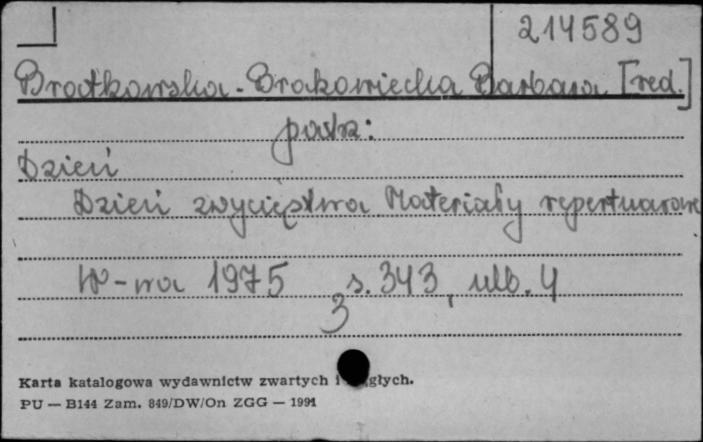 214589
Bratkowska-Brakowiecka Barbara [red.]
patrz:
Dzień
Dzień zwycięstwa Materiały repertuarowe
W-wa 1975 s. 343, ulb. 4
3
Karta katalogowa wydawnictw zwartych i głych.
PU — B144 Zam. 849/DW/On ZGG — 1991